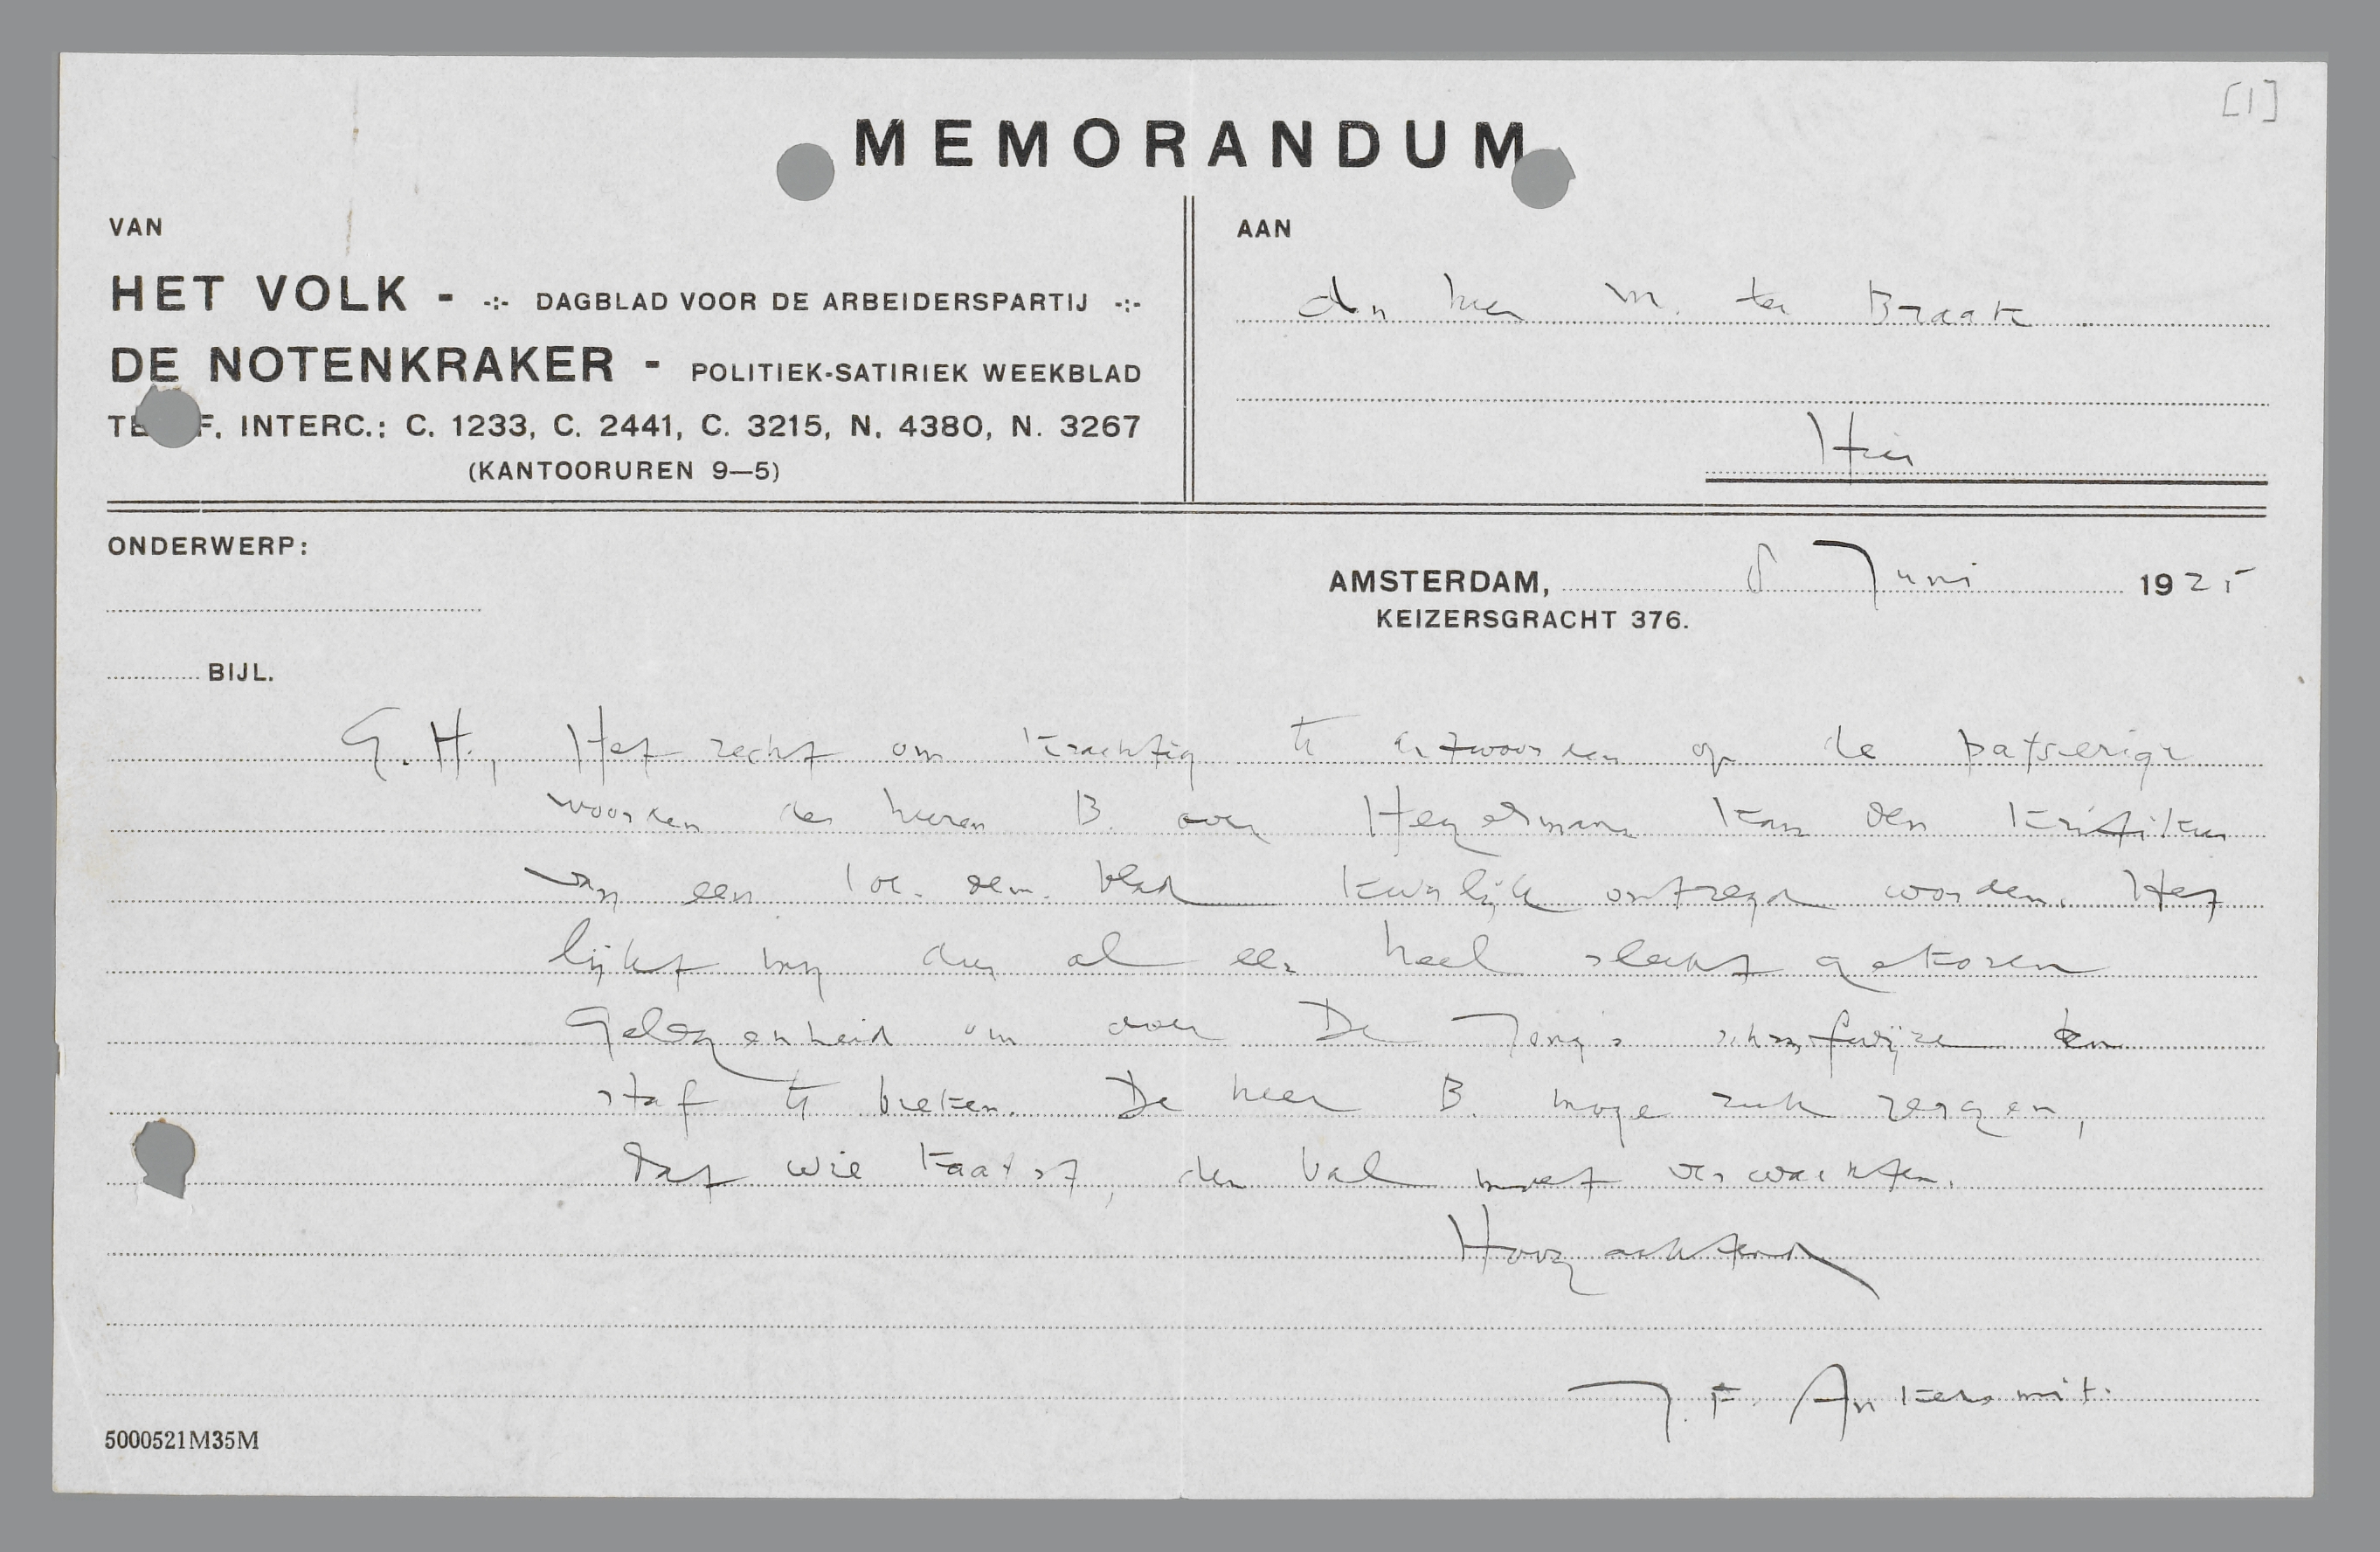 [1]
MEMORANDUM
VAN
HET VOLK - -:- DAGBLAD VOOR DE ARBEIDERSPARTIJ -:-
DE NOTENKRAKER - POLITIEK-SATIRIEK WEEKBLAD
TE F. INTERC.: C. 1233, C. 2441, C. 3215, N. 4380, N. 3267
(KANTOORUREN 9—5)
AAN
den heer M. ter Braak
Hier
ONDERWERP:
AMSTERDAM, 8 Juni 1925
KEIZERSGRACHT 376.
BIJL.
G. H., Het recht om krachtig te antwoorden op de patserige
woorden der heeren B. over Heyermans kan den kritikus
van een soc. dem. blad kwalijk ontzegd worden. Het
lijkt mij dus al een heel slecht gekozen
gelegenheid om over De Jong's schrijfwijze den
staf te breken. De heer B. moge zich zeggen,
dat wie kaatst, den bal moet verwachten.
Hoogachtend
J. F. Ankersmit.
5000521M35M